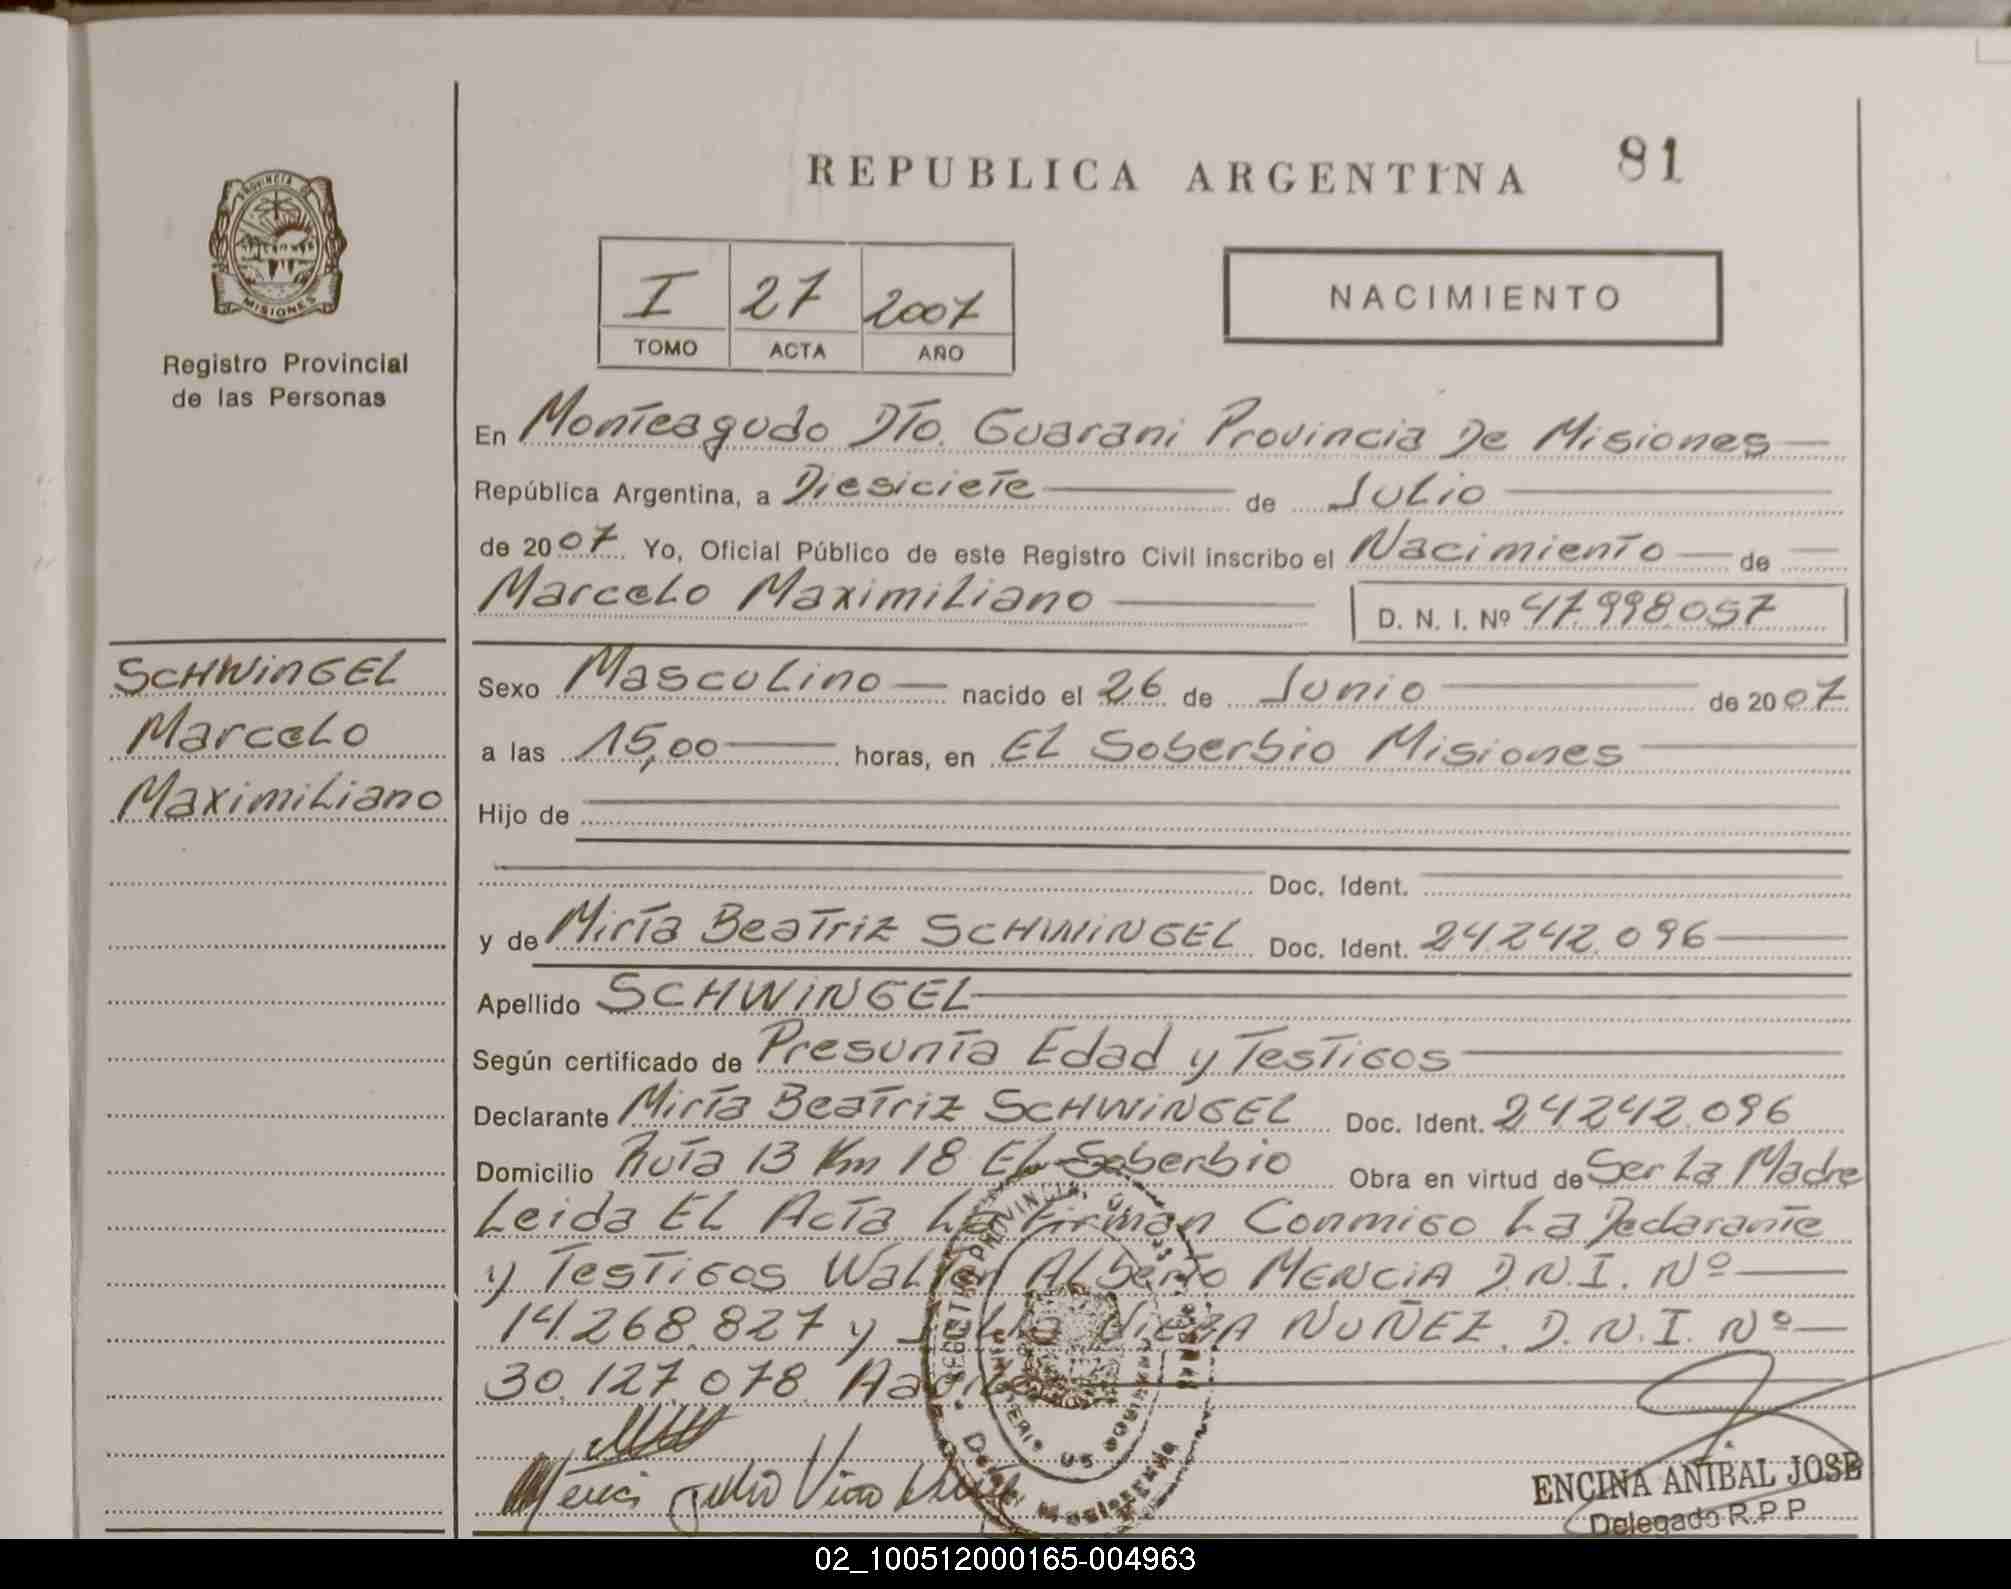 REPUBLICA ARGENTINA 81
PROVINCIA DE
MISIONES
Registro Provincial
de las Personas
I 27 2007
TOMO ACTA AÑO
NACIMIENTO
En Monteagudo Dto. Guarani Provincia De Misiones
República Argentina, a Diesiciete de Julio
de 2007 Yo, Oficial Público de este Registro Civil inscribo el Nacimiento de
Marcelo Maximiliano D. N. I. Nº 47.998.057
SCHWINGEL
Marcelo
Maximiliano
Sexo Masculino nacido el 26 de Junio de 2007
a las 15,00 horas, en El Soberbio Misiones
Hijo de
Doc. Ident.
y de Mirta Beatriz SCHWINGEL Doc. Ident. 24.242.096
Apellido SCHWINGEL
Según certificado de Presunta Edad y Testigos
Declarante Mirta Beatriz SCHWINGEL Doc. Ident. 24.242.096
Domicilio Ruta 13 Km 18 El Soberbio Obra en virtud de Ser La Madre
Leida El Acta La Firman Conmigo La Declarante
y Testigos Walter Alberto MENCIA D.N.I. Nº
14.268.827 y Julio VIERA NUÑEZ. D.N.I. Nº
30.127.078.
ENCINA ANIBAL JOSE
Delegado R.P.P.
02_100512000165-004963